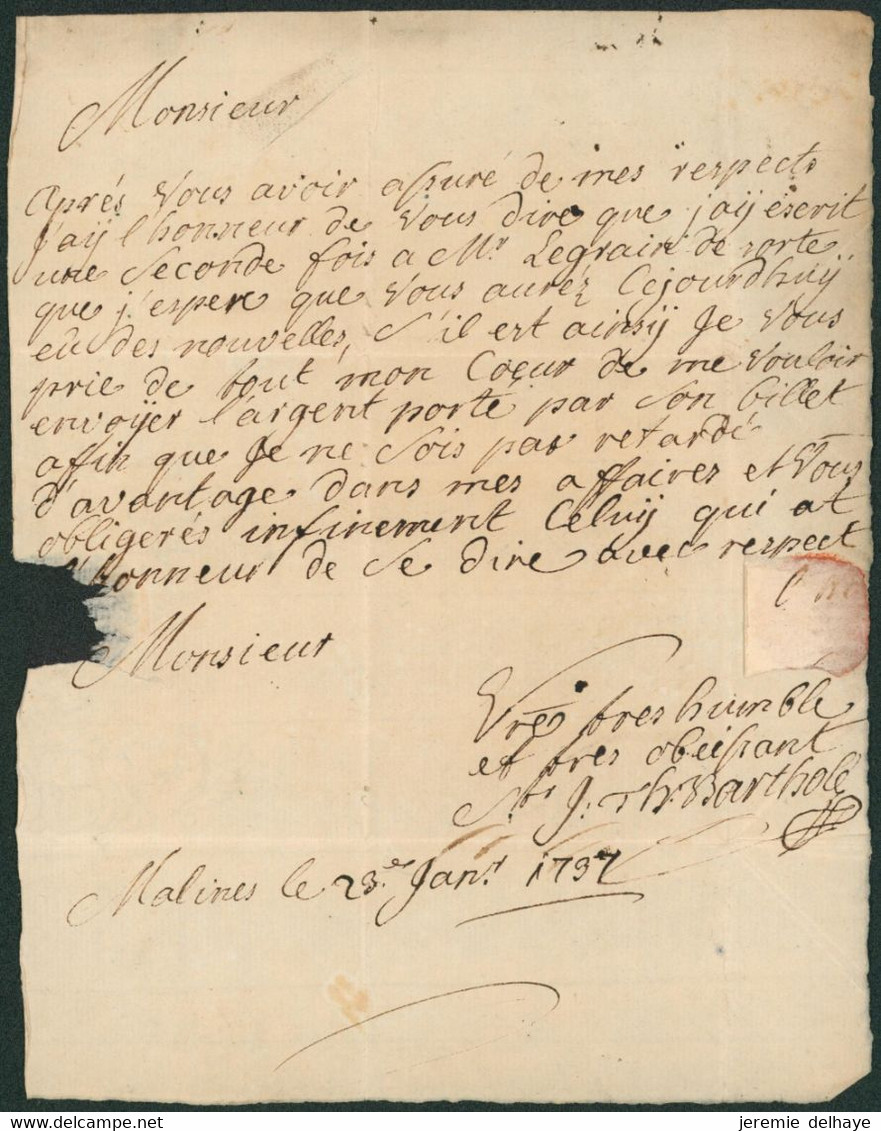 Monsieur
Aprés Vous avoir assuré de mes respects
J'aÿ l'honneur de Vous dire que j'aÿ escrit
une Seconde fois a Mr Legrain de sorte
que j'espere que Vous auréz Cejourdhuÿ
eü des nouvelles, S'il est ainsÿ Je Vous
prie de tout mon Coeur de me Vouloir
envoÿer l'argent porté par Son billet
afin que Je ne Sois pas retardé
d'avantage dans mes affaires et Vous
obligerés infinement Celuÿ qui at
l'honneur de Se dire avec respect
Monsieur
Vre tres humble
et tres obeissant
Str J: Th: Bartholé
Malines le 23e Janr 1737
jeremie delhaye